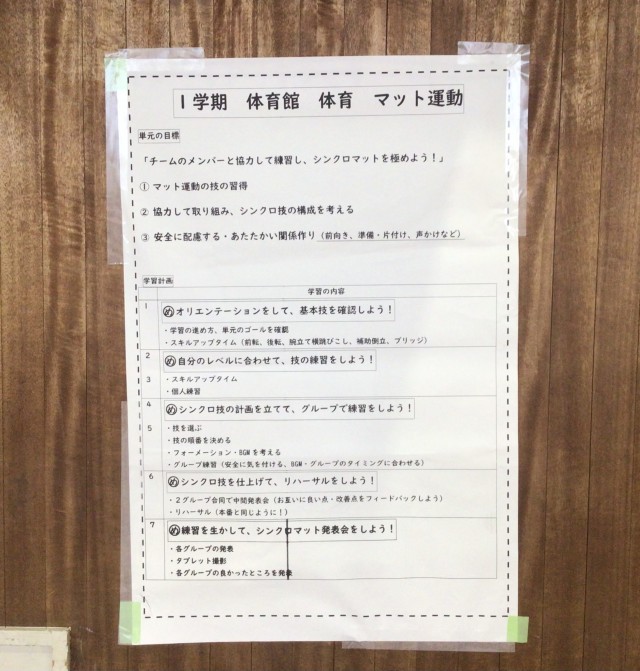 1学期　体育館　体育　マット運動
単元の目標
「チームのメンバーと協力して練習し、シンクロマットを極めよう！」
① マット運動の技の習得
② 協力して取り組み、シンクロ技の構成を考える
③ 安全に配慮する・あたたかい関係作り（前向き、準備・片付け、声かけなど）
学習計画
学習の内容
1 めオリエンテーションをして、基本技を確認しよう！
・学習の進め方、単元のゴールを確認
・スキルアップタイム（前転、後転、腕立て横跳びこし、補助倒立、ブリッジ）
2 め自分のレベルに合わせて、技の練習をしよう！
3 ・スキルアップタイム
・個人練習
4 めシンクロ技の計画を立てて、グループで練習をしよう！
5 ・技を選ぶ
・技の順番を決める
・フォーメーション・BGMを考える
・グループ練習（安全に気を付ける、BGM・グループのタイミングに合わせる）
6 めシンクロ技を仕上げて、リハーサルをしよう！
・２グループ合同で中間発表会（お互いに良い点・改善点をフィードバックしよう）
・リハーサル（本番と同じように！）
7 め練習を生かして、シンクロマット発表会をしよう！
・各グループの発表
・タブレット撮影
・各グループの良かったところを発表